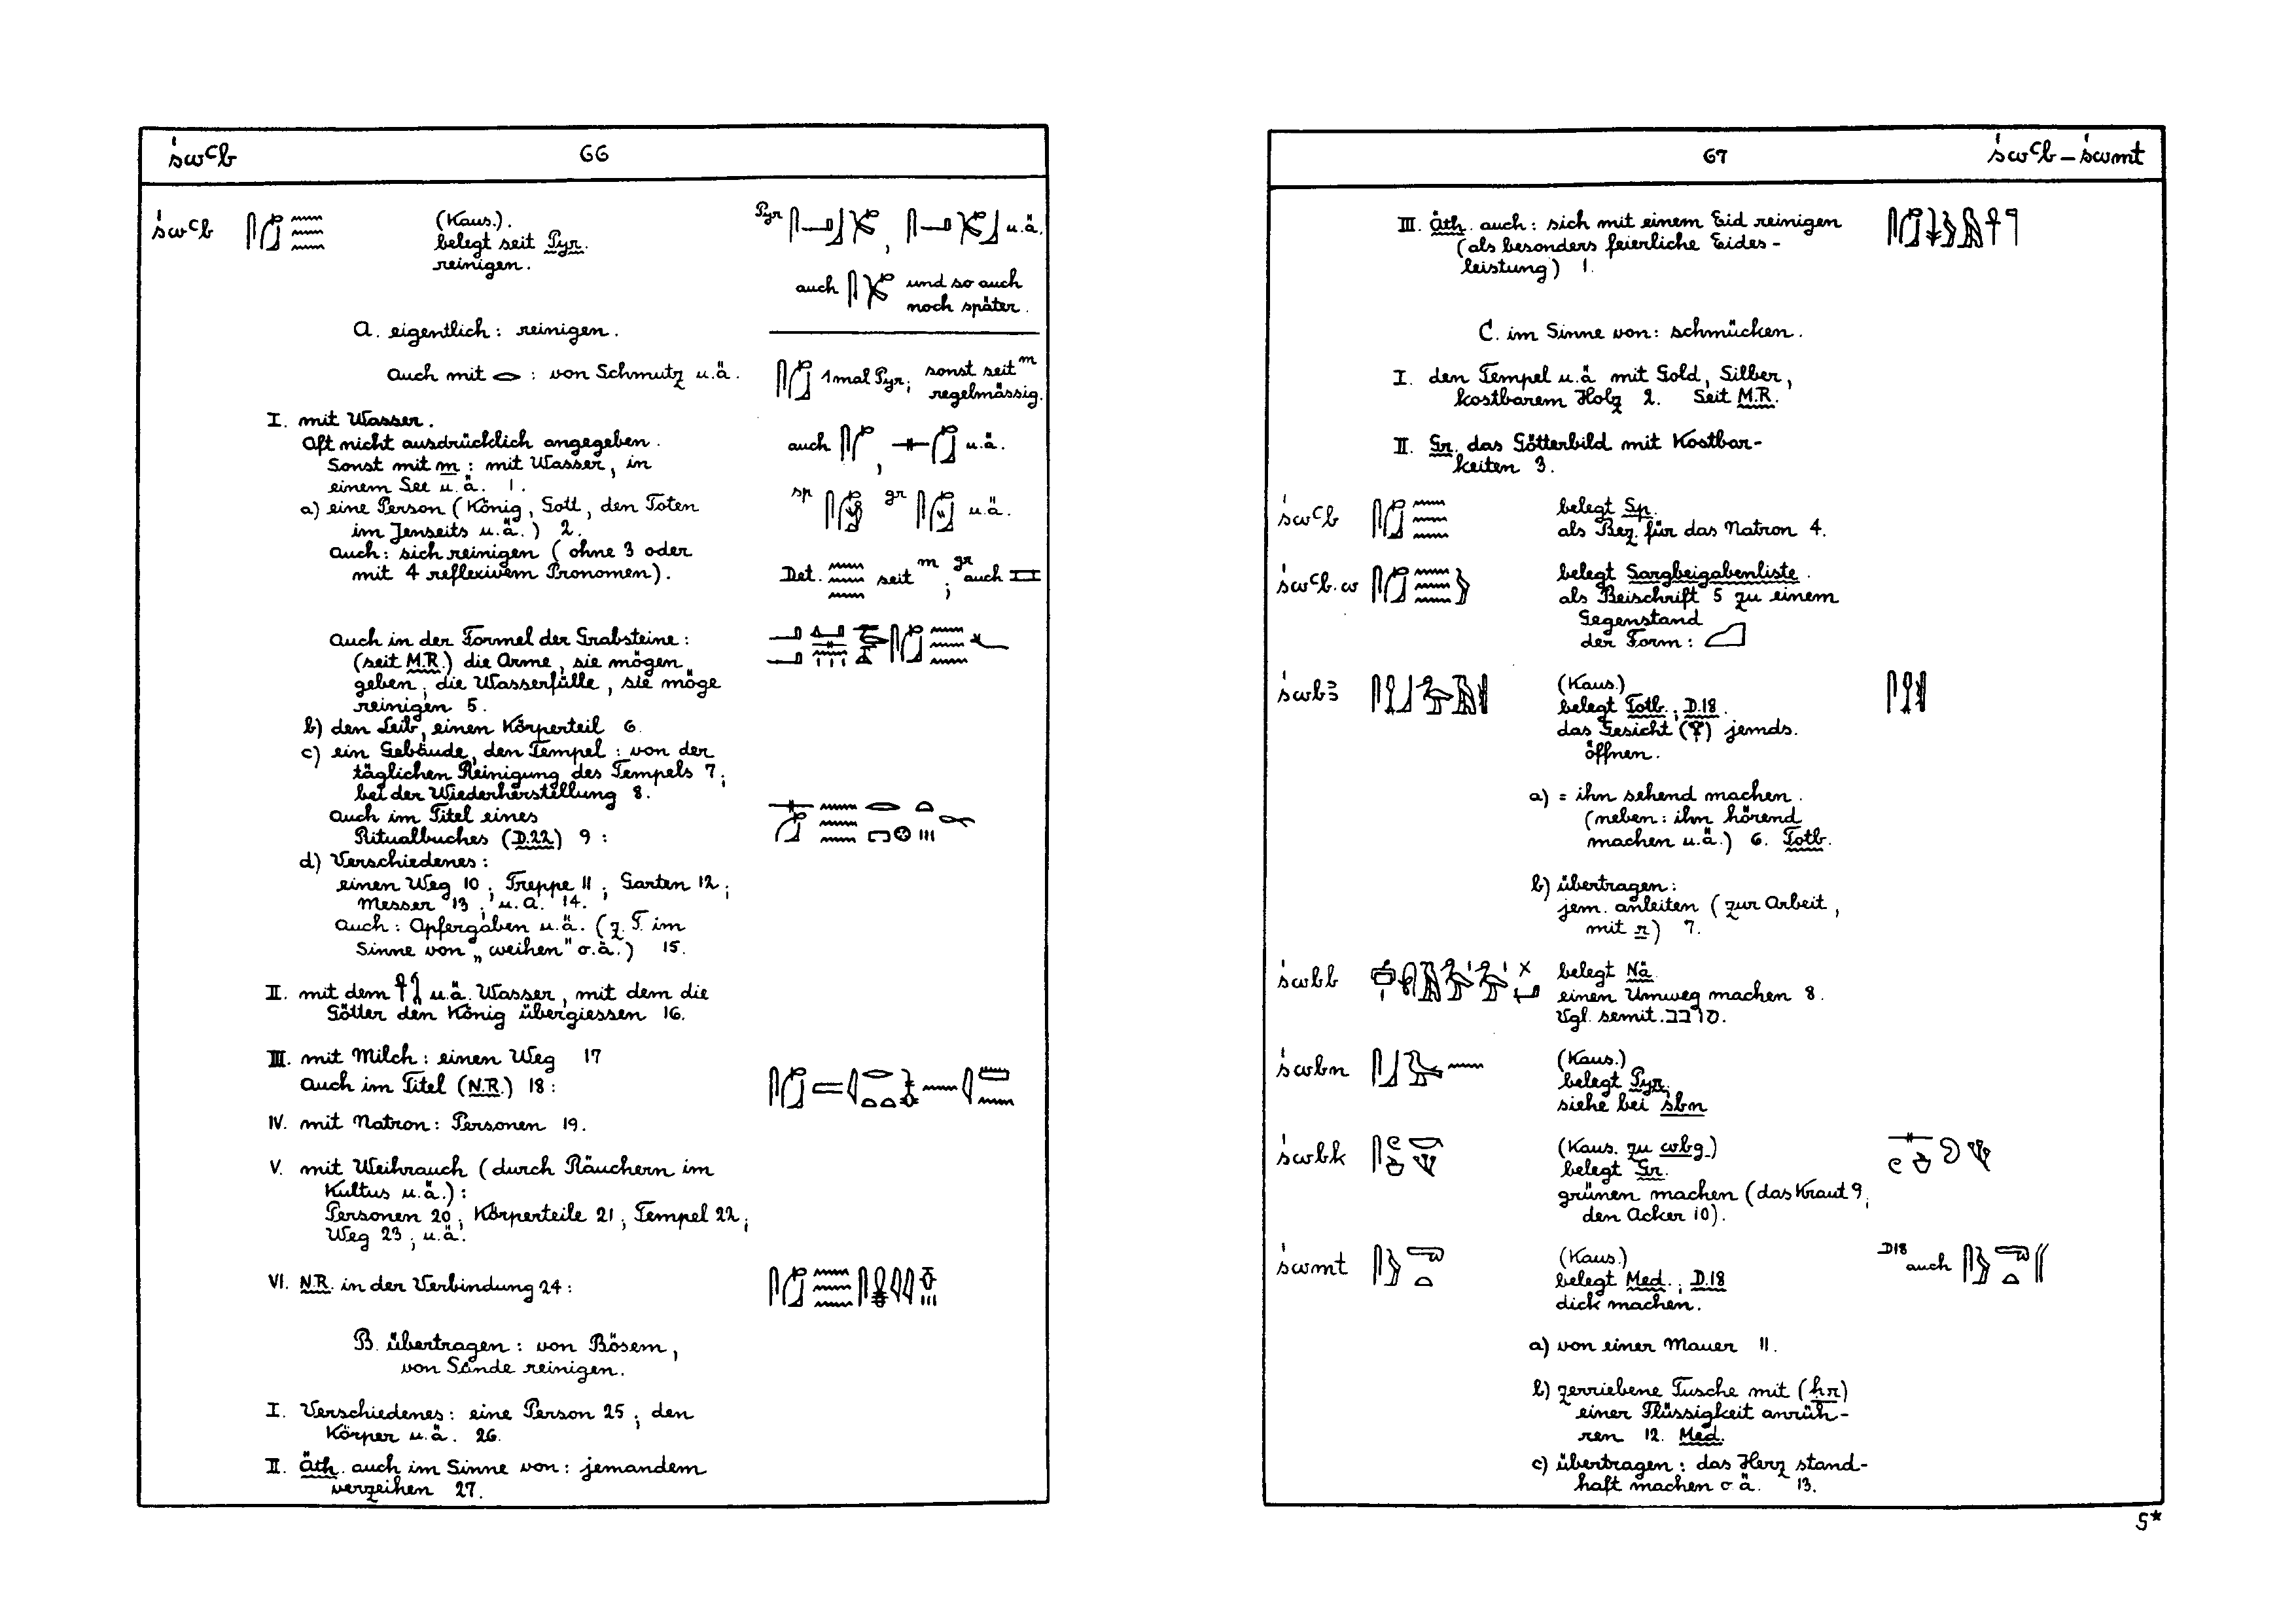 świb 66
śwꜥb (Kaus.).
belegt seit Pyr.
reinigen.
Pyr , u.ä.
auch und so auch
noch später.
A. eigentlich: reinigen.
Auch mit : von Schmutz u.ä.
1mal Pyr; sonst seit m
regelmässig.
I. mit Wasser.
Oft nicht ausdrücklich angegeben.
Sonst mit m: mit Wasser, in
einem See u.ä. 1.
auch , u.ä.
a) eine Person (König, Gott, den Toten
im Jenseits u.ä.) 2.
sp gr u.ä.
Auch: sich reinigen (ohne 3 oder
mit 4 reflexivem Pronomen).
Det. seit m; gr auch
Auch in der Formel der Grabsteine:
(seit M.R.) die Arme, sie mögen
geben, die Wasserfülle, sie möge
reinigen 5.
b) den Leib, einen Körperteil 6.
c) ein Gebäude, den Tempel: von der
täglichen Reinigung des Tempels 7;
bei der Wiederherstellung 8.
Auch im Titel eines
Ritualbuches (D.22) 9:
d) Verschiedenes:
einen Weg 10; Treppe 11; Garten 12;
Messer 13; u.a. 14.
Auch: Opfergaben u.ä. (z.T. im
Sinne von „weihen" o.ä.) 15.
II. mit dem u.ä. Wasser, mit dem die
Götter den König übergiessen 16.
III. mit Milch: einen Weg 17
Auch im Titel (N.R.) 18:
IV. mit Natron: Personen 19.
V. mit Weihrauch (durch Räuchern im
Kultus u.ä.):
Personen 20; Körperteile 21; Tempel 22;
Weg 23; u.ä.
VI. N.R. in der Verbindung 24:
B. übertragen: von Bösem,
von Sünde reinigen.
I. Verschiedenes: eine Person 25; den
Körper u.ä. 26.
II. Äth. auch im Sinne von: jemandem
verzeihen 27.
67 śwꜥb – śwmt
III. Äth. auch: sich mit einem Eid reinigen
(als besonders feierliche Eides-
leistung) 1.
C. im Sinne von: schmücken.
I. den Tempel u.ä. mit Gold, Silber,
kostbarem Holz 2. Seit M.R.
II. Gr. das Götterbild mit Kostbar-
keiten 3.
śwꜥb belegt Sp.
als Bez. für das Natron 4.
śwꜥb.w belegt Sargbeigabenliste.
als Beischrift 5 zu einem
Gegenstand
der Form:
śwbꜣ (Kaus.)
belegt Totb.; D.18.
das Gesicht ( ) jemds.
öffnen.
a) = ihn sehend machen.
(neben: ihn hörend
machen u.ä.) 6. Totb.
b) übertragen:
jem. anleiten (zur Arbeit,
mit r) 7.
śwbb belegt Nä.
einen Umweg machen 8.
Vgl. semit. סובב.
śwbn (Kaus.)
belegt Pyr.
siehe bei sbn
śwbk (Kaus. zu wbg.)
belegt Gr.
grünen machen (das Kraut 9;
den Acker 10).
śwmt (Kaus.)
belegt Med.; D.18
dick machen.
D18 auch
a) von einer Mauer 11.
b) zerriebene Tusche mit (ḥr)
einer Flüssigkeit anrüh-
ren 12. Med.
c) übertragen: das Herz stand-
haft machen o.ä. 13.
5*